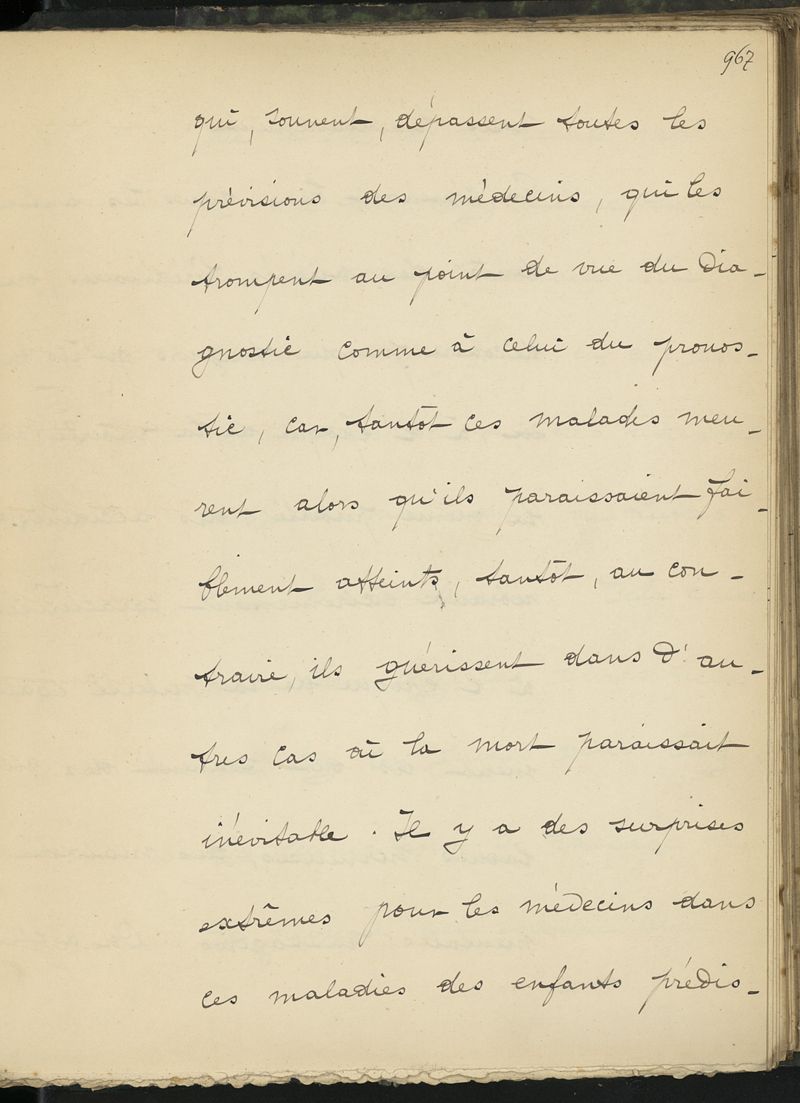 967
qui, souvent, dépassent toutes les
prévisions des médecins, qui les
trompent au point de vue du dia-
gnostic comme à celui du pronos-
tic, car, tantôt ces malades meu-
rent alors qu'ils paraissaient fai-
blement atteints, tantôt, au con-
traire, ils guérissent dans d'au-
tres cas où la mort paraissait
inévitable. Il y a des surprises
extrêmes pour les médecins dans
ces maladies des enfants prédis-